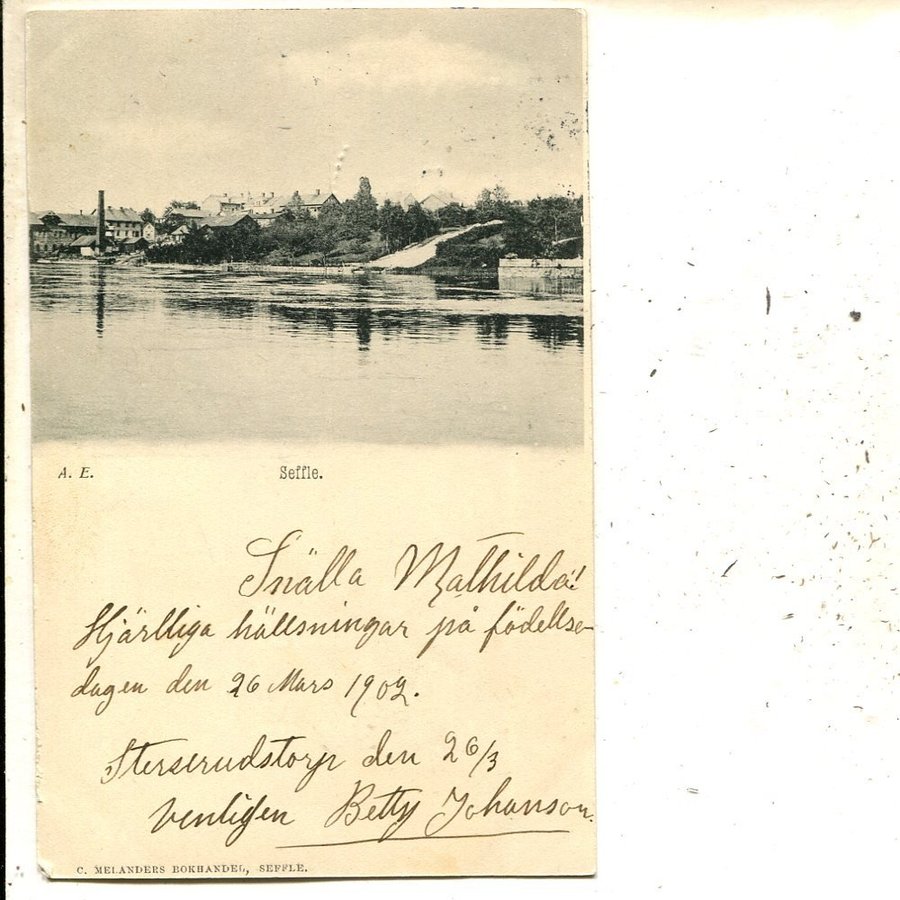 A. E.
Seffle.
Snälla Mathilda!
Hjärlliga hällsningar på födellse-
dagen den 26 Mars 1902.
den 26/3
venligen Betty Johanson.
C. MELANDERS BOKHANDEL, SEFFLE.